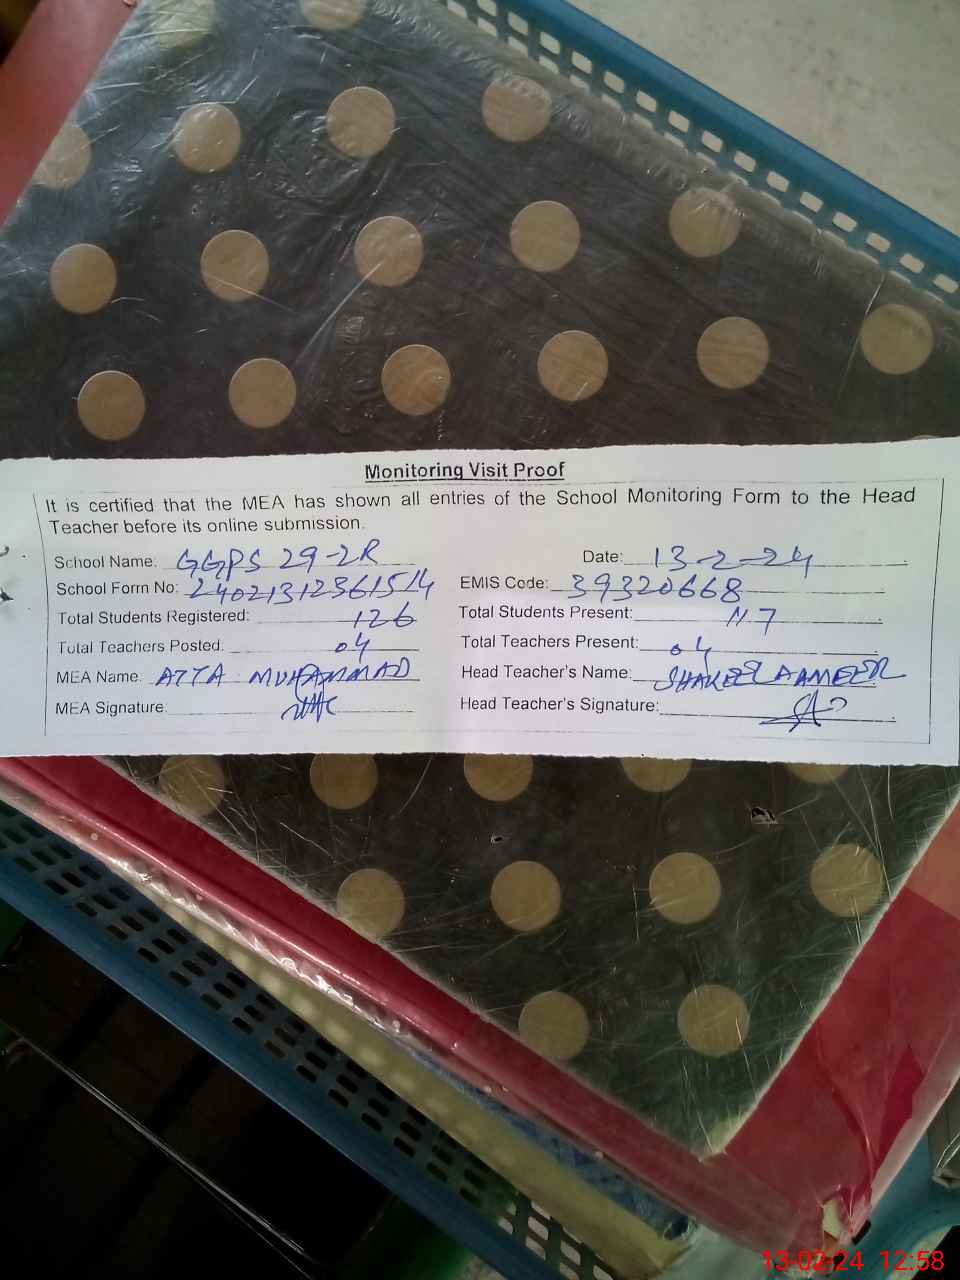 Monitoring Visit Proof
It is certified that the MEA has shown all entries of the School Monitoring Form to the Head
Teacher before its online submission.
School Name: GGPS 29-2R Date: 13-2-24
School Form No: 24021312361514 EMIS Code: 39320668
Total Students Registered: 126 Total Students Present: 117
Total Teachers Posted: 04 Total Teachers Present: 04
MEA Name: ATTA MUHAMMAD Head Teacher's Name: SHAKEELA AMEER
MEA Signature: Head Teacher's Signature:
13-02-24 12:58